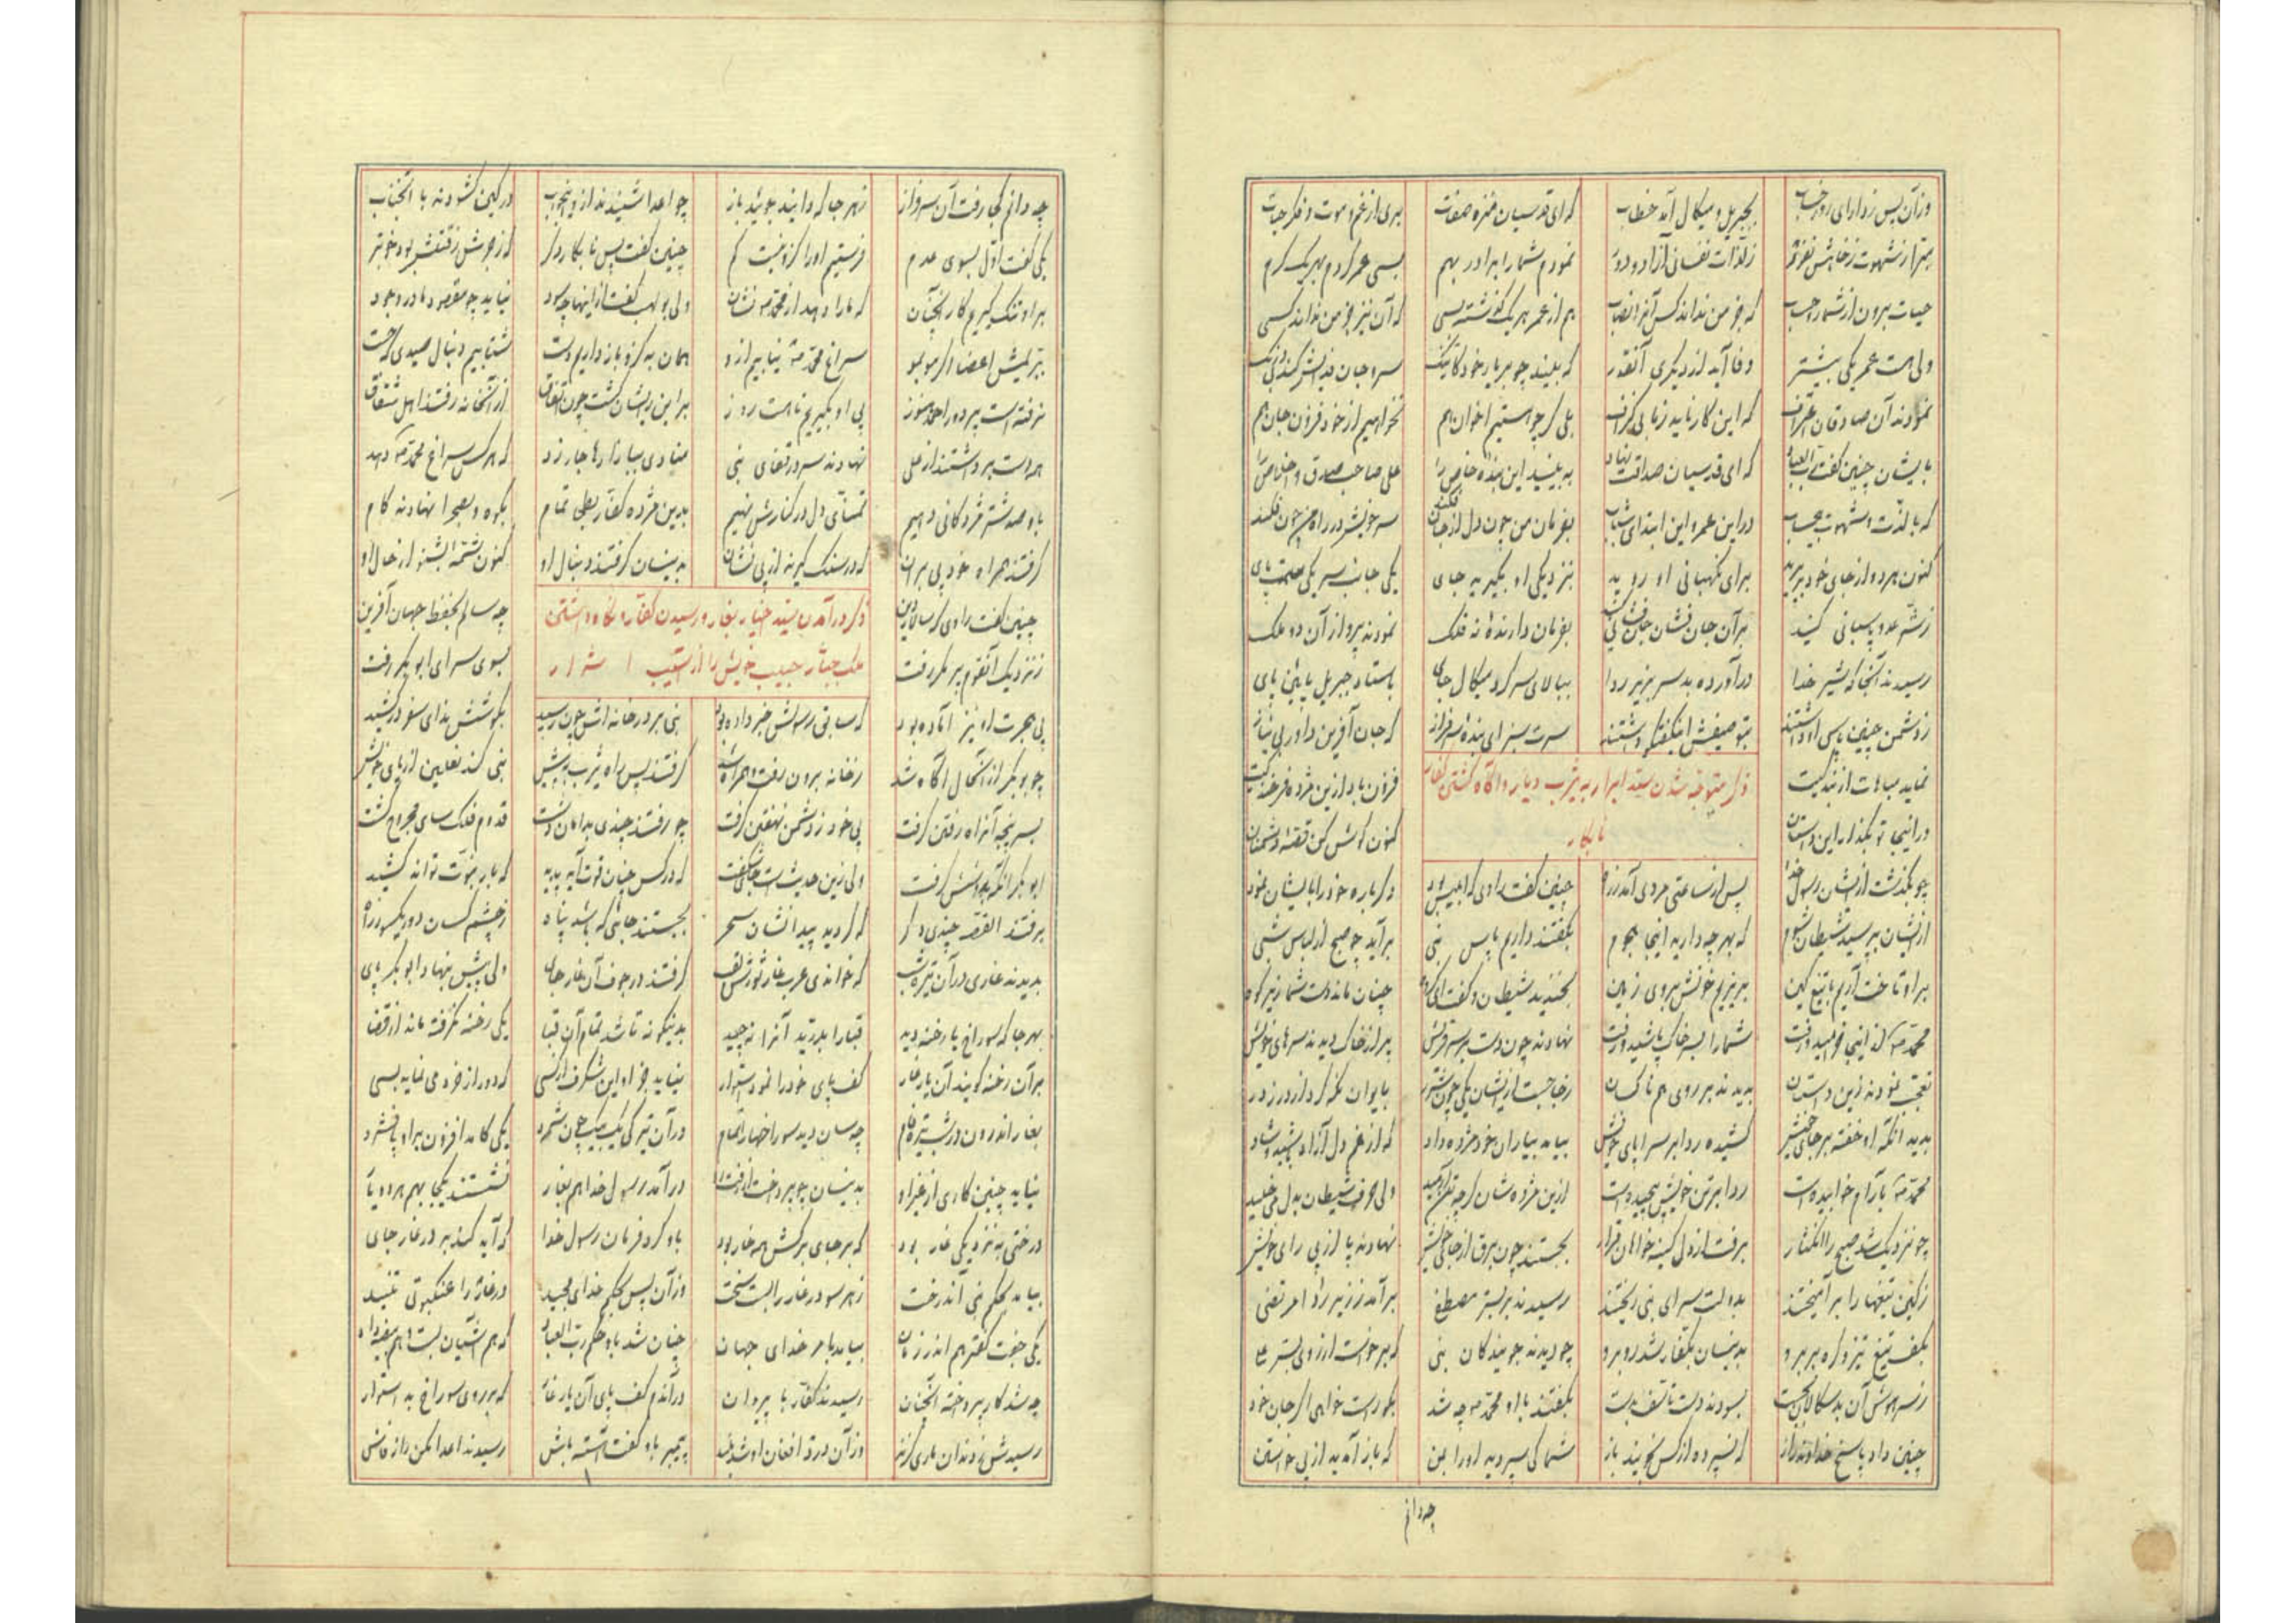 وزآن پس ز دارای روز حساب بجبریل و میکال آمد خطاب که ای قدسیان منزه صفات بری از غم و موت و فکر حیات
زلذات نفسانی آزاد و دور نمودم شما را برادر بهم بسی عمر کردم بهریک کرم
حیات برون از شمار و حسب که جز من نداند کس آنرا نصاب هم از عمر هریک گذشته بسی که آن نیز جز من نداند کسی
ولی هست عمر یکی بیشتر وفا آید از دیگری آنقدر که بیند چو بر یار خود کار تنک سر و جان فدایش کند بیدرنک
نمودند آن صادقان اعتراف که این کار ناید ز ما بی گزاف بلی گرچو هستیم اخوان هم نخواهیم از خود فزون جان هم
بایشان چنین گفت رب العباد که ای قدسیان صداقت نهاد به بینید این بنده خاص را علی صاحب صدق و اخلاص را
که با لذت و شهوت بیحساب در این عمر و این ابتدای شباب بفرمان من چون دل از جان کند سر خویش در راه من چون فکند
کنون هردو از جای خود برپرید برای نگهبانی او روید بنزدیکی او بگیرید جای یکی جانب سر یکی سمت پای
ز شر عدو پاسبانی کنید بر آن جان فشان جان فشانی کنید بفرمان دارندهٔ نه فلک نمودند پرواز آن دو ملک
رسیدند آنجا که شیر خدا درآورده بد سر بزیر ردا ببالای سر کرد میکال جای باستاد جبریل پایین پای
ز دشمن چنین پاس او داشتند بتوصیفش آنگه سر بزیر ای بنده سرفراز که جان آفرین داور بی نیاز
نماید مباهات از بندگیت فزون باد از این مژده فرخندگیت
ذکر متوجه شدن سید ابرار به یثرب دیار و آگاه گشتن کفار
نابکار
در اینجا تو بگذار این داستان کنون گوش کن قصهٔ دشمنان
چو بگذشت از ایشان رسول خدا پس از ساعتی مردی آمد ز ره چنین گفت راوی که ابلیس بود دگرباره خود را بایشان نمود
از ایشان بپرسید شیطان شوم که بهر چه دارید اینجا هجوم بگفتند داریم پاس نبی برآید چو صبح از لباس شبی
براو تاخت آریم با تیغ کین بریزیم خونش بروی زمین بخندید شیطان و گفت ای گروه چنان ماند دست شما زیر کوه
محمد ص که از اینجا خرامید و رفت شما را بسر خاک پاشید و رفت نهادند چون دست بر سر قریش پر از خاک دیدند سرهای خویش
تعجب نمودند زین داستان بدیدند بر روی هم ناکسان ز جا جست از ایشان یکی چون شرر بایوان نگه کرد از درز در
بدید آنکه او خفته بر جای خویش کشیده ردا بر سراپای خویش بیامد بیاران خود مژده داد که از غم دل آزاد باشید و شاد
محمد ص بآرام خوابیده است ردا بر تن خویش پیچیده است ازین مژده شان گرچه تن آرمید ولی حرف شیطان بدل می خلید
چو نزدیک شد صبح را انکشار برفت از دل کینه خواهان قرار بجستند چون برق از جای خویش نهادند پا از پی رای خویش
ز کین تیغها را برآمیختند بدولت سرای نبی ریختند رسیدند بر بستر مصطفی برآمد ز زیر ردا مرتضی
بکف تیغ تیز و گره بر برو بدینسان بکفار شد روبرو چو دیدند جویندگان نبی که برخاست از روی بستر ع
ز سر هوش آن بدسکالان بجست بسودند دست تأسف بدست بگفتند با او محمد ص چه شد بگو راست خواهی اگر جان خود
چنین داد پاسخ خداوند راز که نسپرده از کس نجویند باز شما کی سپردید او را بمن که باز آمدید از پی خواستن
چه دانم
چه دانم کجا رفت آن سرفراز ز هر جا که دانید جوئید باز چو اعدا شنیدند از او جواب در کین گشودند با آنجناب
یکی گفت اول بسوی عدم فرستیم او را کزو نیست کم چنین گفت پس نابکار دگر که زجرش ز قتلش بود خوبتر
بر او تنک گیریم کار آنچنان که ما را دهد از محمد ص نشان ولی بولهب گفت از اینها چه سود نیاید چو مقصود ما در وجود
ببریمش اعضا اگر موبمو سراغ محمد ص نیابیم از او همان به کزو باز داریم دست شتابیم دنبال صیدی که جست
نرفته است پر دور احمد هنوز پی او بگیریم تا هست روز بر این رای شان گشت چون اتفاق از آنخانه رفتند اهل شقاق
همه دست برداشتند از علی نهادند سر در قفای نبی منادی ببازارها جار زد که هرکس سراغ محمد ص دهد
باو صد شتر مژدگانی دهیم تمنای دل در کنارش نهیم بدین مژده کفار بطحی تمام بکوه و بصحرا نهادند گام
گرفتند همراه خود پی بران که در سنگ گیرند از پی نشان بدینسان گرفتند دنبال او کنون شمهٔ بشنو از حال او
ذکر درآمدن سید اخیار بغار و رسیدن کفار و نگاه داشتن
ملک جبار حبیب خویش را از آسیب اشرار
چنین گفت راوی که سالار دین چه سالم بحفظ جهان آفرین
ز نزدیک آنقوم پر مکر رفت بسوی سرای ابوبکر رفت
پی هجرت او نیز آماده بود که سابق رسولش خبر داده بود نبی بر در خانه اش چون رسید بگوشش ندای سفر درکشید
چو بوبکر از آنحال آگاه شد ز خانه برون رفت و همراه شد گرفتند پس راه یثرب به پیش نبی کند نعلین از پای خویش
بسر پنجه آنراه رفتن گرفت پی خود ز دشمن نهفتن گرفت چو رفتند چندی بدامان دشت قدوم فلک سای مجروح گشت
ابوبکر آنگه بدوشش گرفت ولی زین حدیث است جای شگفت که در کس چنان قوت آید پدید که بار نبوت تواند کشید
برفتند القصه چندی دگر که گردید پیدا نشان سحر بجستند جائی که باشد پناه ز چشم کسان دور یکسو ز راه
بدیدند غاری در آن تیره شب که خواندی عرب غار ثورش لقب گرفتند در جوف آن غار جای ولی پیش بنهاد ابوبکر پای
بهر جا که سوراخ یا رخنه دید قبا را بدرید آنرا نه چید بدینگونه تا شد تمام آن قبا یکی رخنه نگرفته ماند از قضا
بر آن رخنه گویند آن یار غار کف پای خود را نمود استوار نیاید جز او این شگرف از کسی که دور از خرد می نماید بسی
بغار اندرون در شب تیره فام چه سان دید سوراخها را تمام در آن تیرگی یک بیک چون شمرد یکی کامد افزون بر او پا فشرد
نیاید چنین کاری از غیر او بدینسان چو پرداخت از رفت و رو درآمد رسول خدا هم بغار نشستند یکجا بهم هر دو یار
درختی به نزدیکی غار بود که بر جای برگش همه خار بود باو کرد فرمان رسول خدا که آید کند بر در غار جای
بیامد بحکم نبی آندرخت ز هر سو در غار را بست سخت وزآن پس بحکم خدای مجید در غار را عنکبوتی تنید
یکی جفت کفتر هم اندر زمان بیامد بامر خدای جهان چنان شد باو حکم رب العباد که هم آشیان بست و هم بیضه داد
چه شد کار پرداخته آنچنان رسیدند کفار با پی بران در آندم کف پای آن یار غار که بر روی سوراخ بد استوار
رسیدش ز دندان ماری گزند وزآن درد افغان او شد بلند پیمبر باو گفت آهسته باش رسیدند اعدا مکن راز فاش